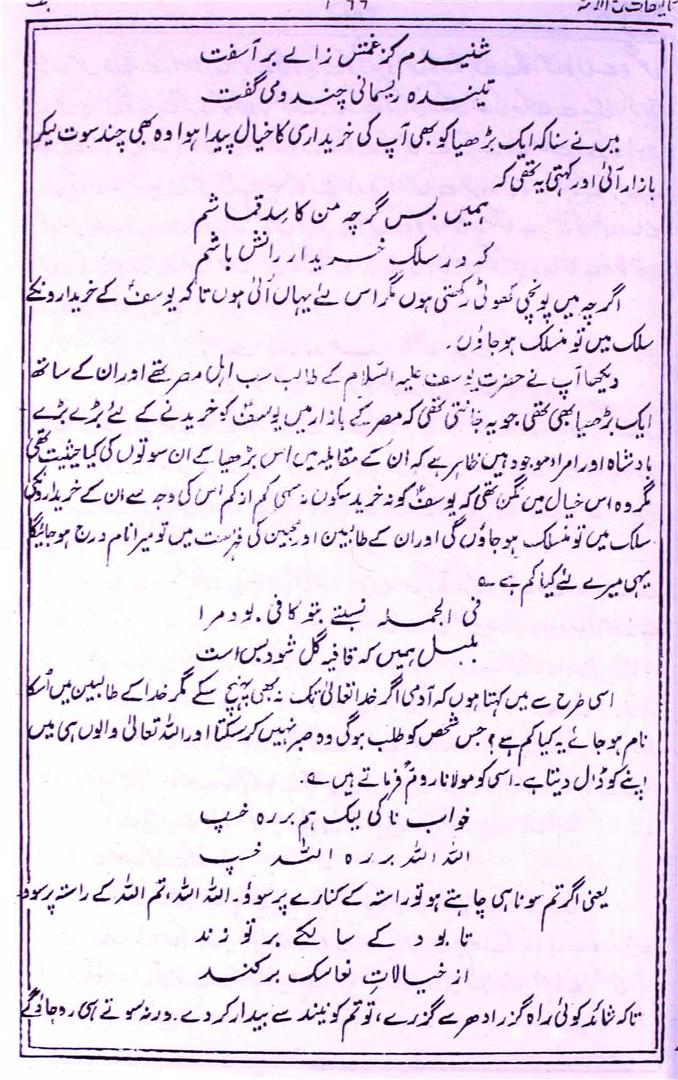 ۱۶۶
شنیدم کز غمش زالے بر آسفت
تنیدہ ریسمانی چند و می گفت
میں نے سنا کہ ایک بڑھیا کو بھی آپ کی خریداری کا خیال پیدا ہوا وہ بھی چند سوت لیکر
بازار آئی اور کہتی یہ تھی کہ
ہمیں بس گرچہ من کاسد قماشم
کہ در سلک خریدارانش باشم
اگرچہ میں پونچی کھوٹی رکھتی ہوں مگر اس لئے یہاں آئی ہوں تاکہ یوسفؑ کے خریدارونکے
سلک میں تو منسلک ہو جاؤں۔
دیکھا آپ نے حضرت یوسف علیہ السلام کے طالب سب اہل مصر تھے اور ان کے ساتھ
ایک بڑھیا بھی تھی جو یہ جانتی تھی کہ مصر کے بازار میں یوسفؑ کو خریدنے کے لئے بڑے بڑے
بادشاہ اور امراء موجود ہیں ظاہر ہے کہ ان کے مقابلہ میں اس بڑھیا کے ان سوتوں کی کیا حیثیت تھی
مگر وہ اس خیال میں مگن تھی کہ یوسفؑ کو نہ خرید سکوں نہ سہی کم از کم اس کی وجہ سے ان کے خریدارونکی
سلک میں تو منسلک ہو جاؤں گی اور ان کے طالبین اور محبین کی فہرست میں تو میرا نام درج ہو جائیگا
یہی میرے لئے کیا کم ہے ؎
فی الجملہ نسبتے بتو کافی بود مرا
بلبل ہمیں کہ قافیہ گل شود بس است
اسی طرح سے میں کہتا ہوں کہ آدمی اگر خدا تعالیٰ تک نہ بھی پہنچ سکے مگر خدا کے طالبین میں اُسکا
نام ہو جائے یہ کیا کم ہے؟ جس شخص کو طلب ہوگی وہ صبر نہیں کر سکتا اور اللہ تعالیٰ والوں ہی میں
اپنے کو ڈال دیتا ہے۔ اسی کو مولانا رومؒ فرماتے ہیں ؎
خواب ناکی لیک ہم بر رہ خسپ
اللہ اللہ بر رہ اللہ خسپ
یعنی اگر تم سونا ہی چاہتے ہو تو راستہ کے کنارے پر سوؤ۔ اللہ اللہ، تم اللہ کے راستہ پر سوؤ
تا بود کے سالکے بر تو زند
از خیالات نعاسک بر کند
تاکہ شائد کوئی راہ گزر ادھر سے گزرے، تو تم کو نیند سے بیدار کر دے۔ ورنہ سوتے ہی رہ جاؤگے